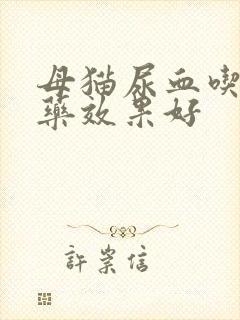 母猫尿血喫
藥效果好
許業信